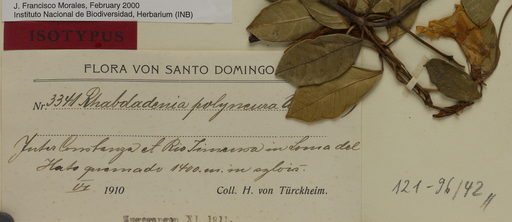 J. Francisco Morales, February 2000
Instituto Nacional de Biodiversidad, Herbarium (INB)
ISOTYPUS
FLORA VON SANTO DOMINGO
Nr. 3341 Rhabdadenia polyneura
Inter Constanza et Rio in Loma del
Hato quemado 1400 m. in
VI 1910 Coll. H. von Türckheim.
121-96/42